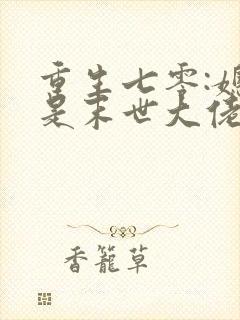 重生七零:媳
是末世大佬
香籠草